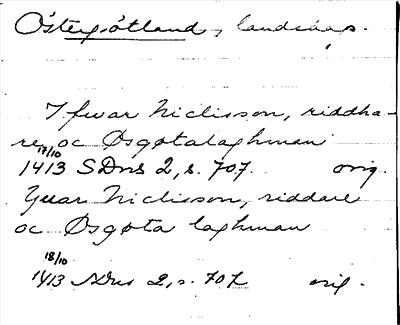 Östergötland, landskap.
Ifwar Niclisson, riddha-
re oc Østgøtalaghman
17/10
1413 SDns 2, s. 707. orig.
Yuar Niclisson, riddare
oc Østgøta laghman
18/10
1413 SDns 2, s. 707 orig.